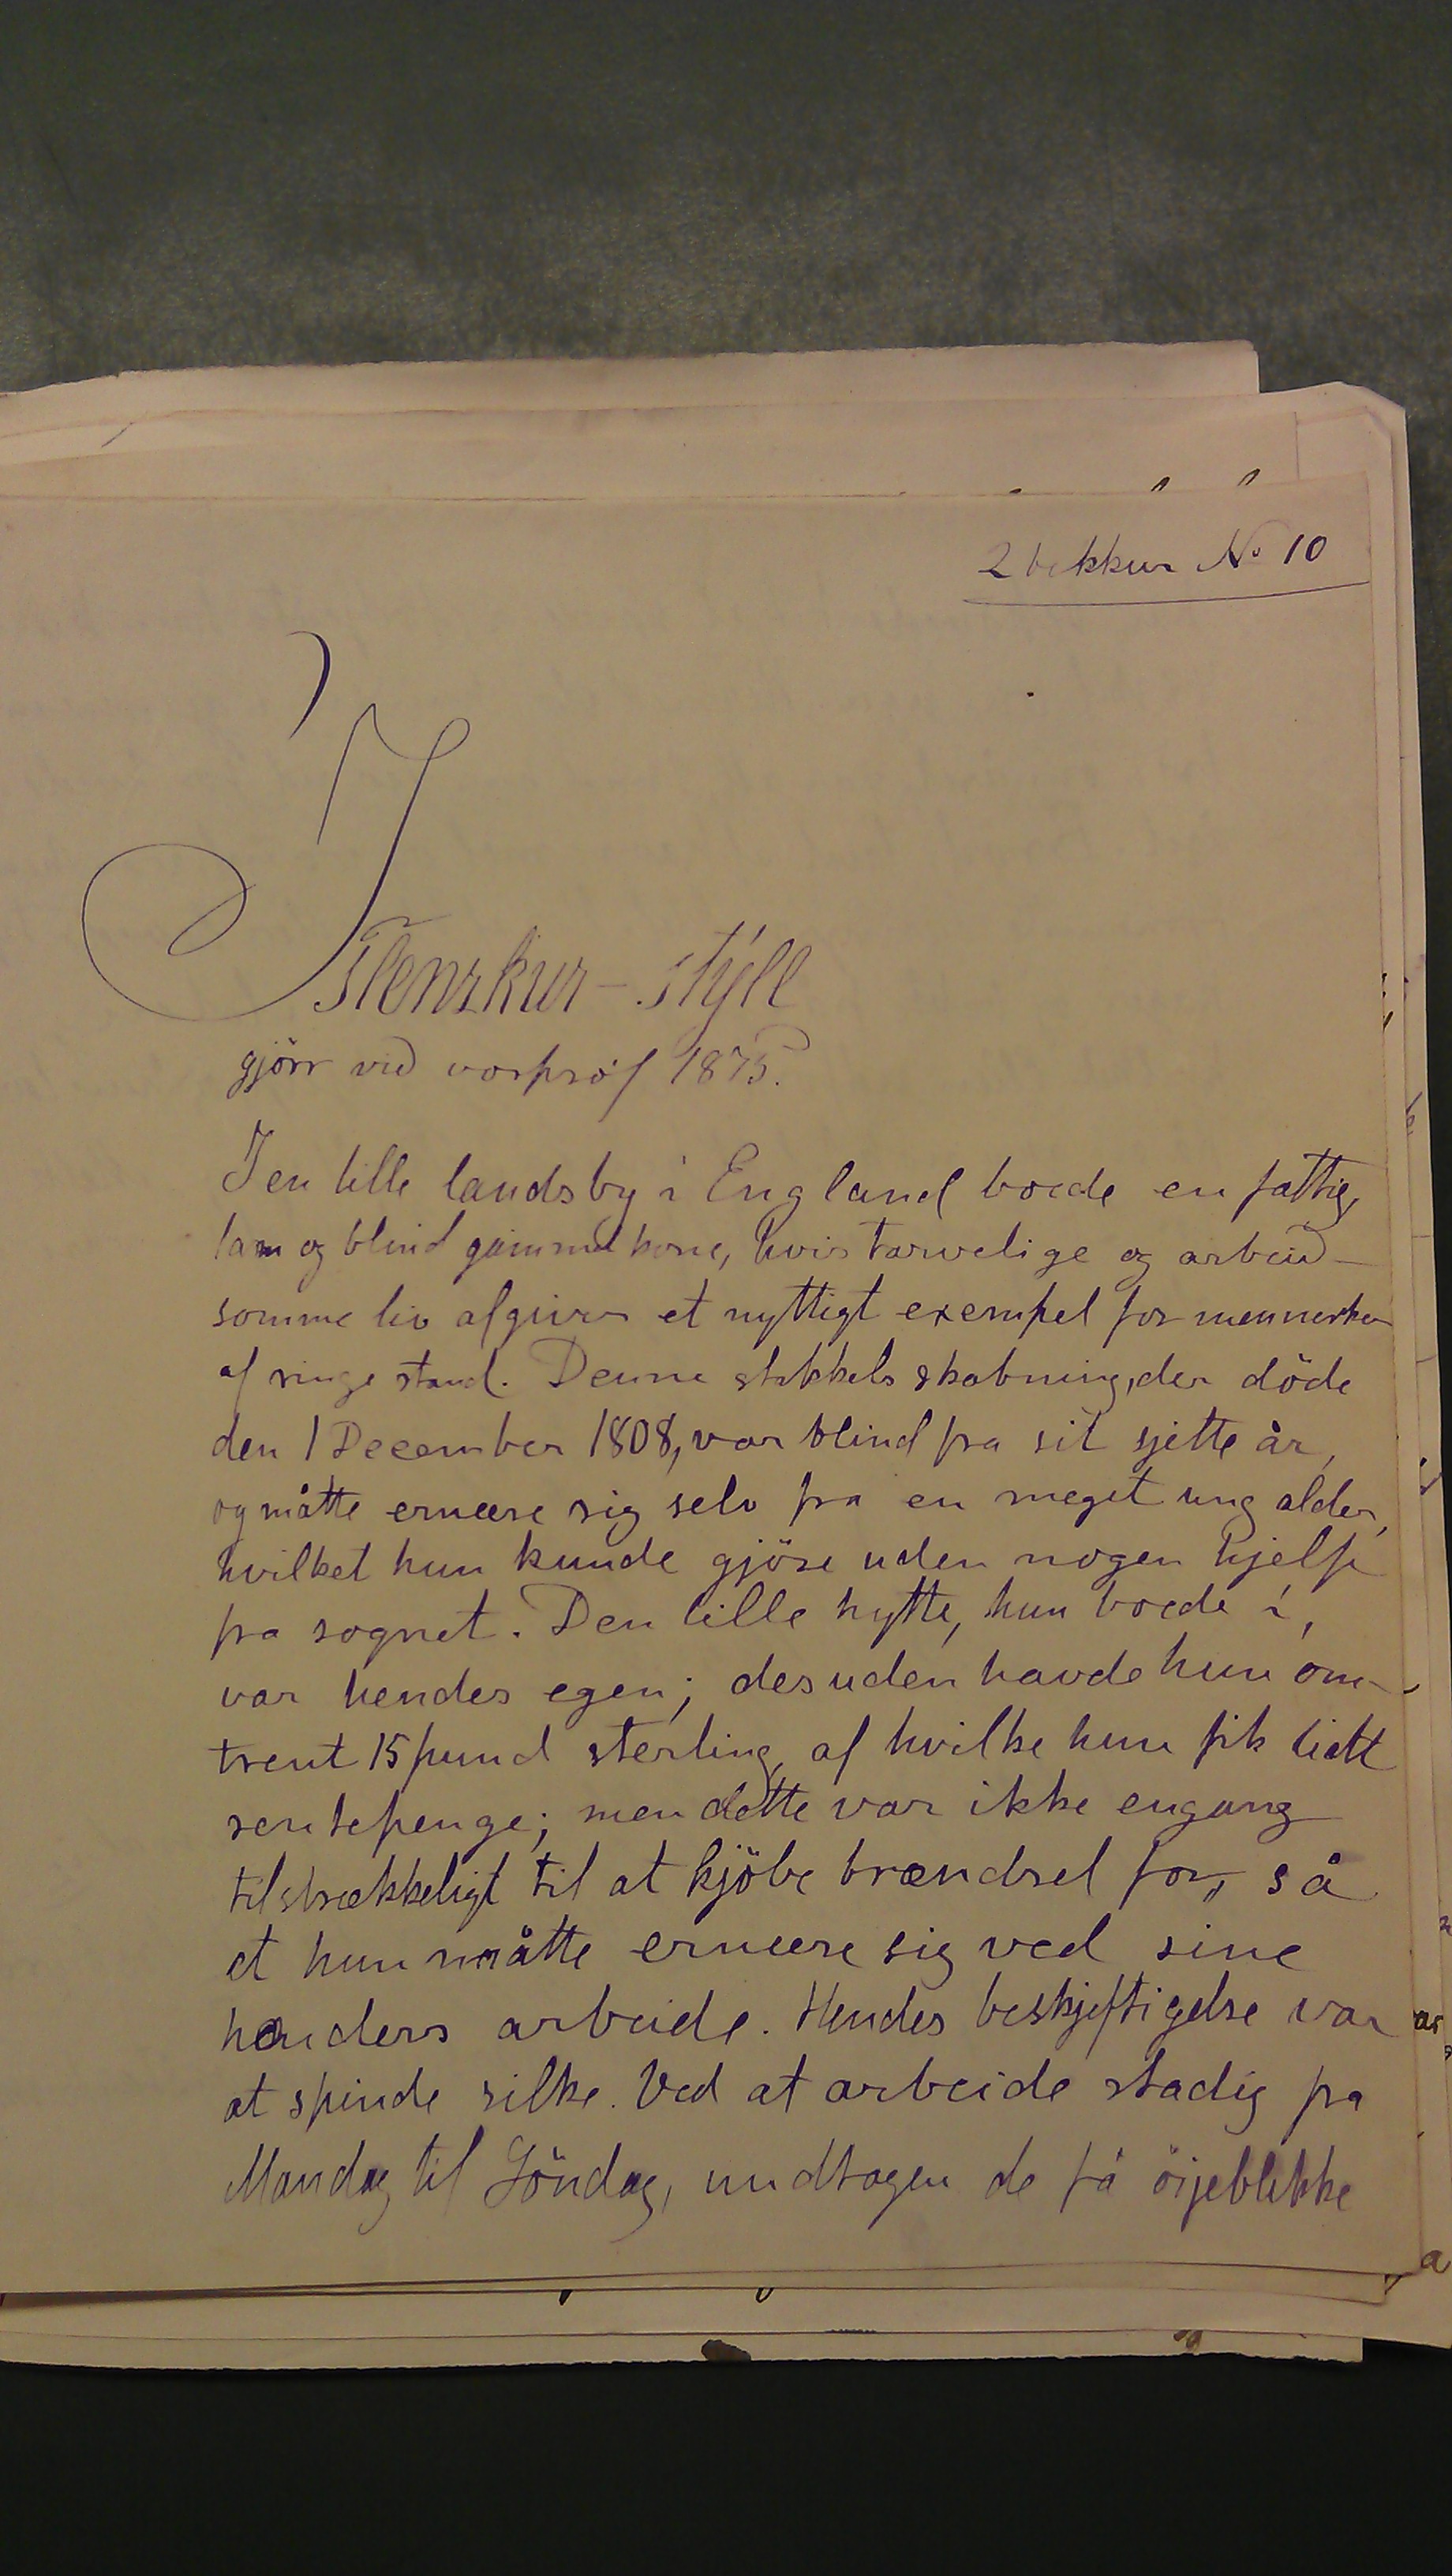 2 bekkur No 10
Íslenzkur-stýll
gjörr við vorpróf 1875.
I en lille landsby i England boede en fattig,
lam og blind gammel kone, hvis tarvelige og arbeid-
somme liv afgiver et nyttigt exempel for mennesker
af ringe stand. Denne stakkels skabning, der döde
den 1 December 1808, var blind fra sit sjette år,
og måtte ernære sig selv fra en meget ung alder,
hvilket hun kunde gjöre uden nogen hjelp
fra sognet. Den lille hytte, hun boede i,
var hendes egen; desuden havde hun om-
trent 15 pund sterling, af hvilke hun fik lidt
rentepenge; men dette var ikke engang
tilstrækkeligt til at kjöbe brændsel for, så
at hun måtte ernære sig ved sine
hænders arbeide. Hendes beskjeftigelse var
at spinde silke. Ved at arbeide stadig fra
Mandag til Söndag, undtagen de få öijeblikke